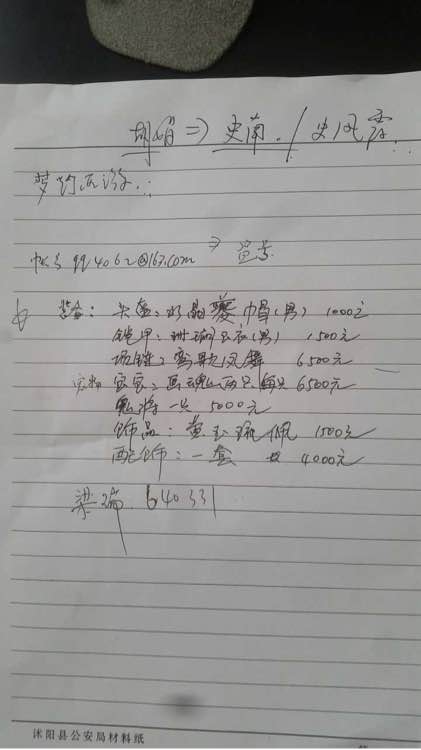 胡娟⇒史南./史风霖
梦幻西游
帐号 994062@163.com ⇒ 盗号
装备: 头盔: 水晶夔帽(男) 1000元
铠甲: 珊瑚玉衣(男) 1500元
项链: 鸾歌凤舞 6500元
宝宝: 画魂两只 每只 6500元
鬼将一只 5000元
饰品: 黄玉琉佩 1500元
配饰: 一套 4000元
梁瑞 640331
沭阳县公安局材料纸